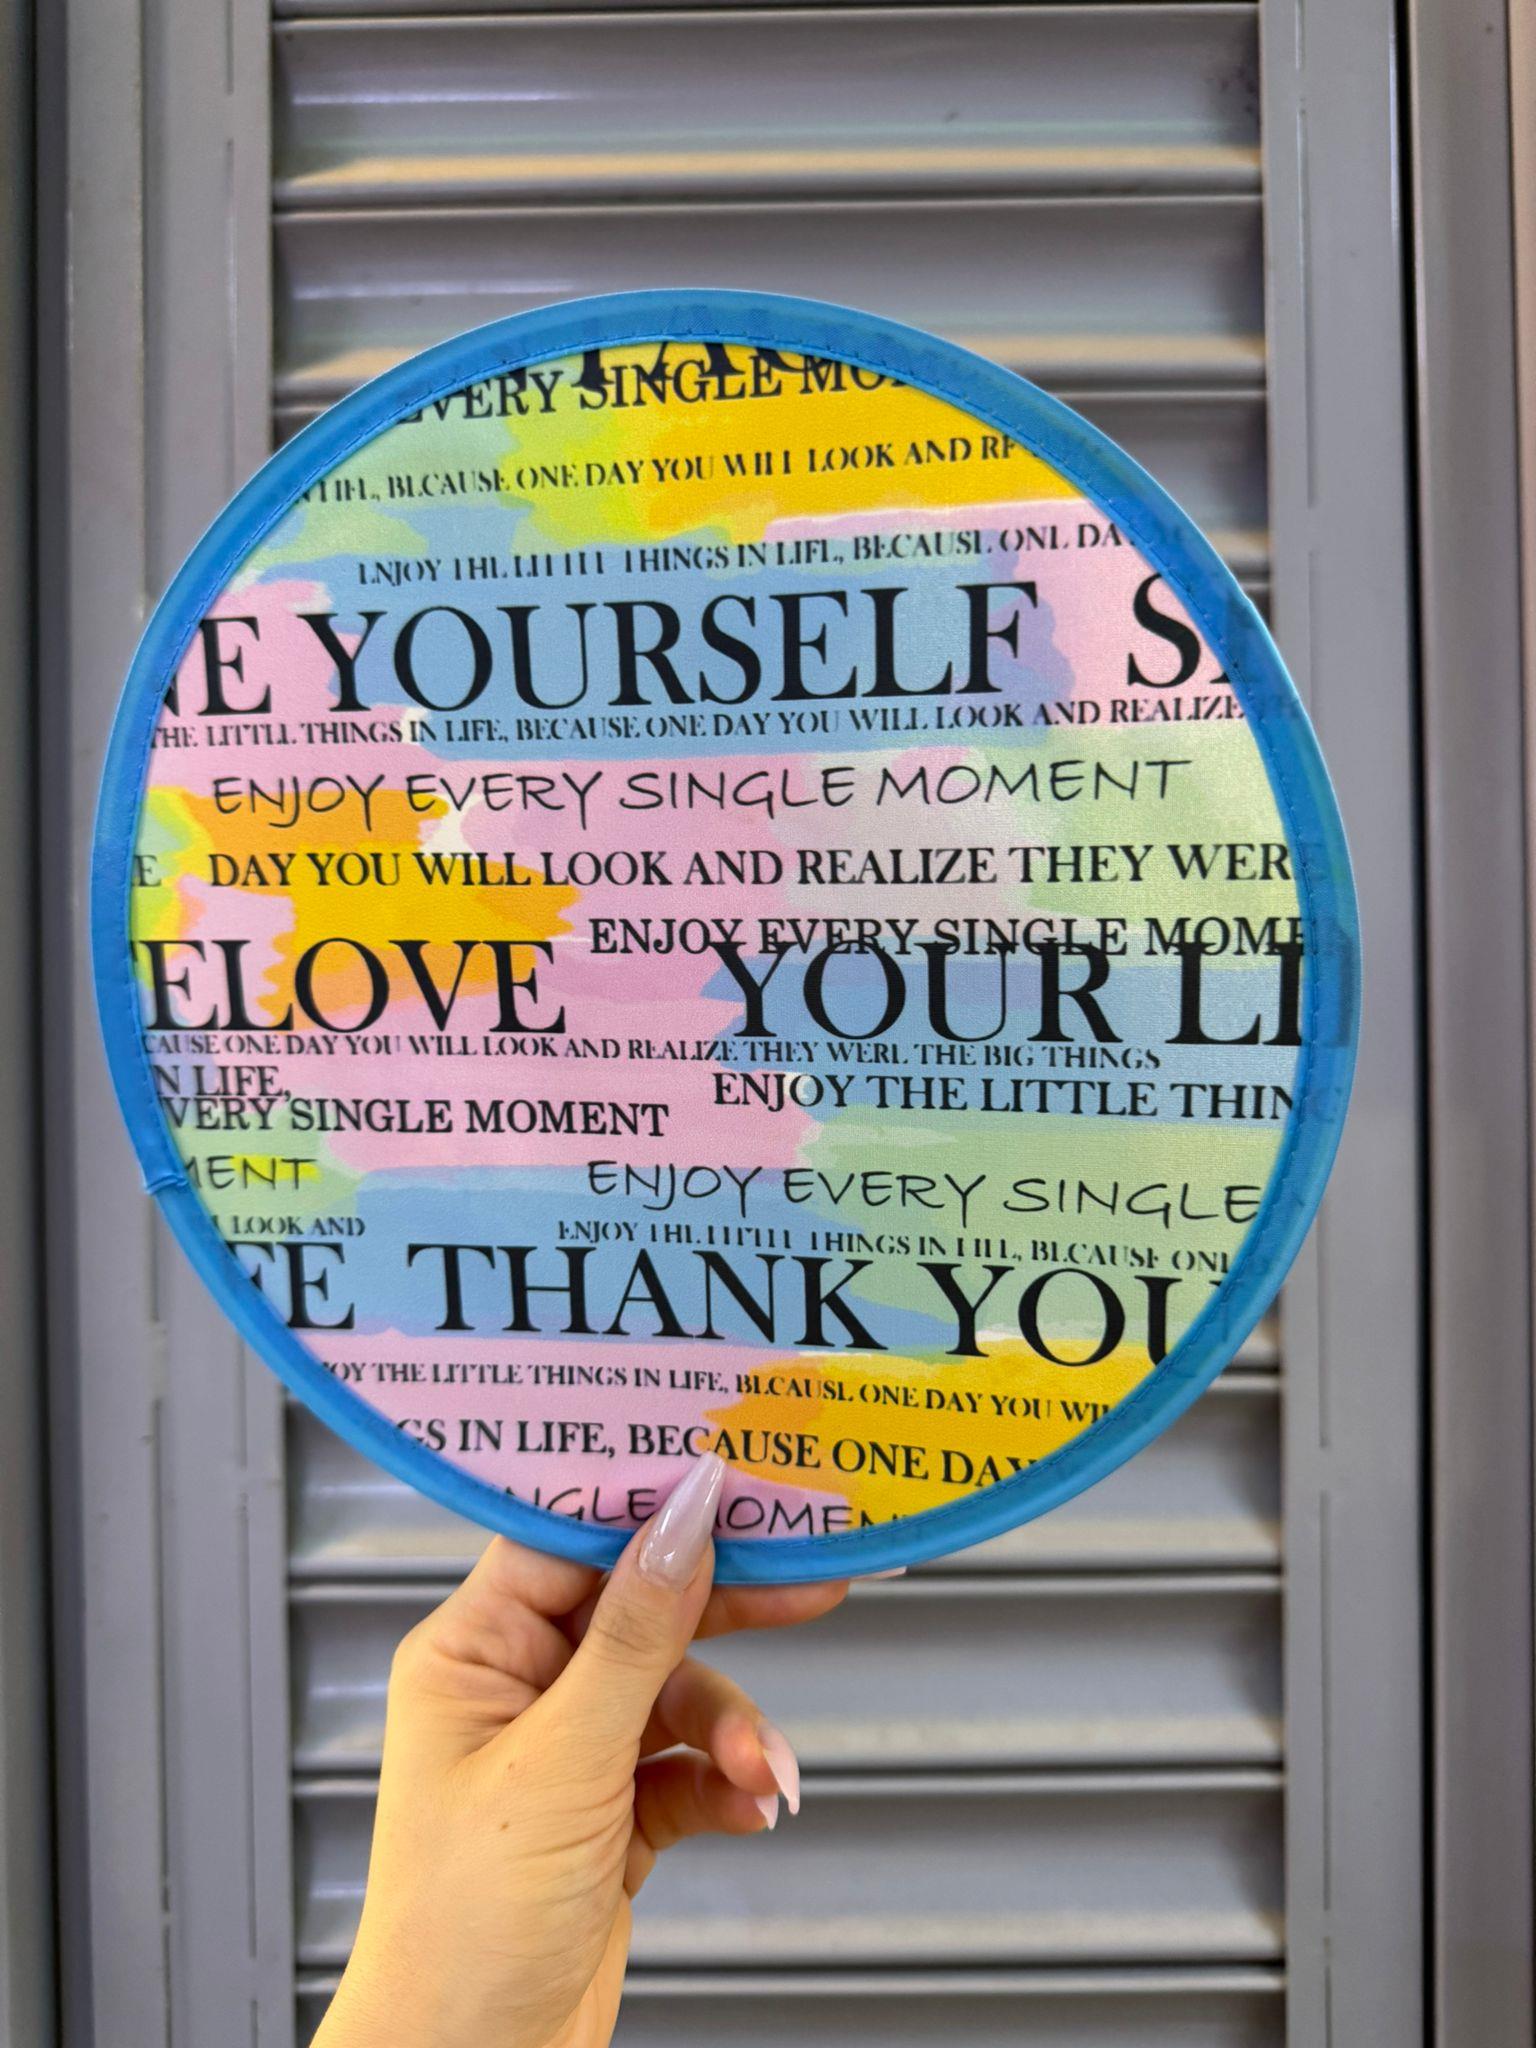 EVERY SINGLE
BLCAUSE ONE DAY YOU WILL LOOK AND
ENJOY THE LITTLE THINGS IN LIFE, BECAUSE ONE DA
NE YOURSELF S
THE LITTLE THINGS IN LIFE, BECAUSE ONE DAY YOU WILL LOOK AND REALIZE
ENJOY EVERY SINGLE MOMENT
E DAY YOU WILL LOOK AND REALIZE THEY WER
ENJOY EVERY SINGLE MOME
ELOVE YOUR LI
CAUSE ONE DAY YOU WILL LOOK AND REALIZE THEY WERE THE BIG THINGS
N LIFE,
ENJOY THE LITTLE THIN
VERY SINGLE MOMENT
MENT
ENJOY EVERY SINGLE
LOOK AND
ENJOY THE LITTLE THINGS IN LIFE, BECAUSE ONE
FE THANK YOU
OY THE LITTLE THINGS IN LIFE, BECAUSE ONE DAY YOU WI
GS IN LIFE, BECAUSE ONE DAY
NGLE OMEN